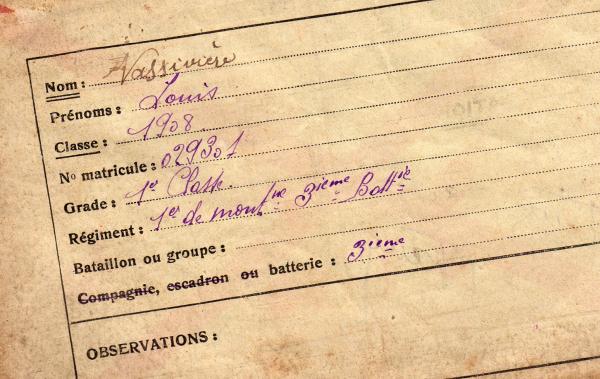 Nom : Vassivière
Prénoms : Louis
Classe : 1908
No matricule : 029301
Grade : 1er Classe.
Régiment : 1er de montne 3ieme Battie
Bataillon ou groupe :
Compagnie, escadron ou batterie : 3ieme
OBSERVATIONS :